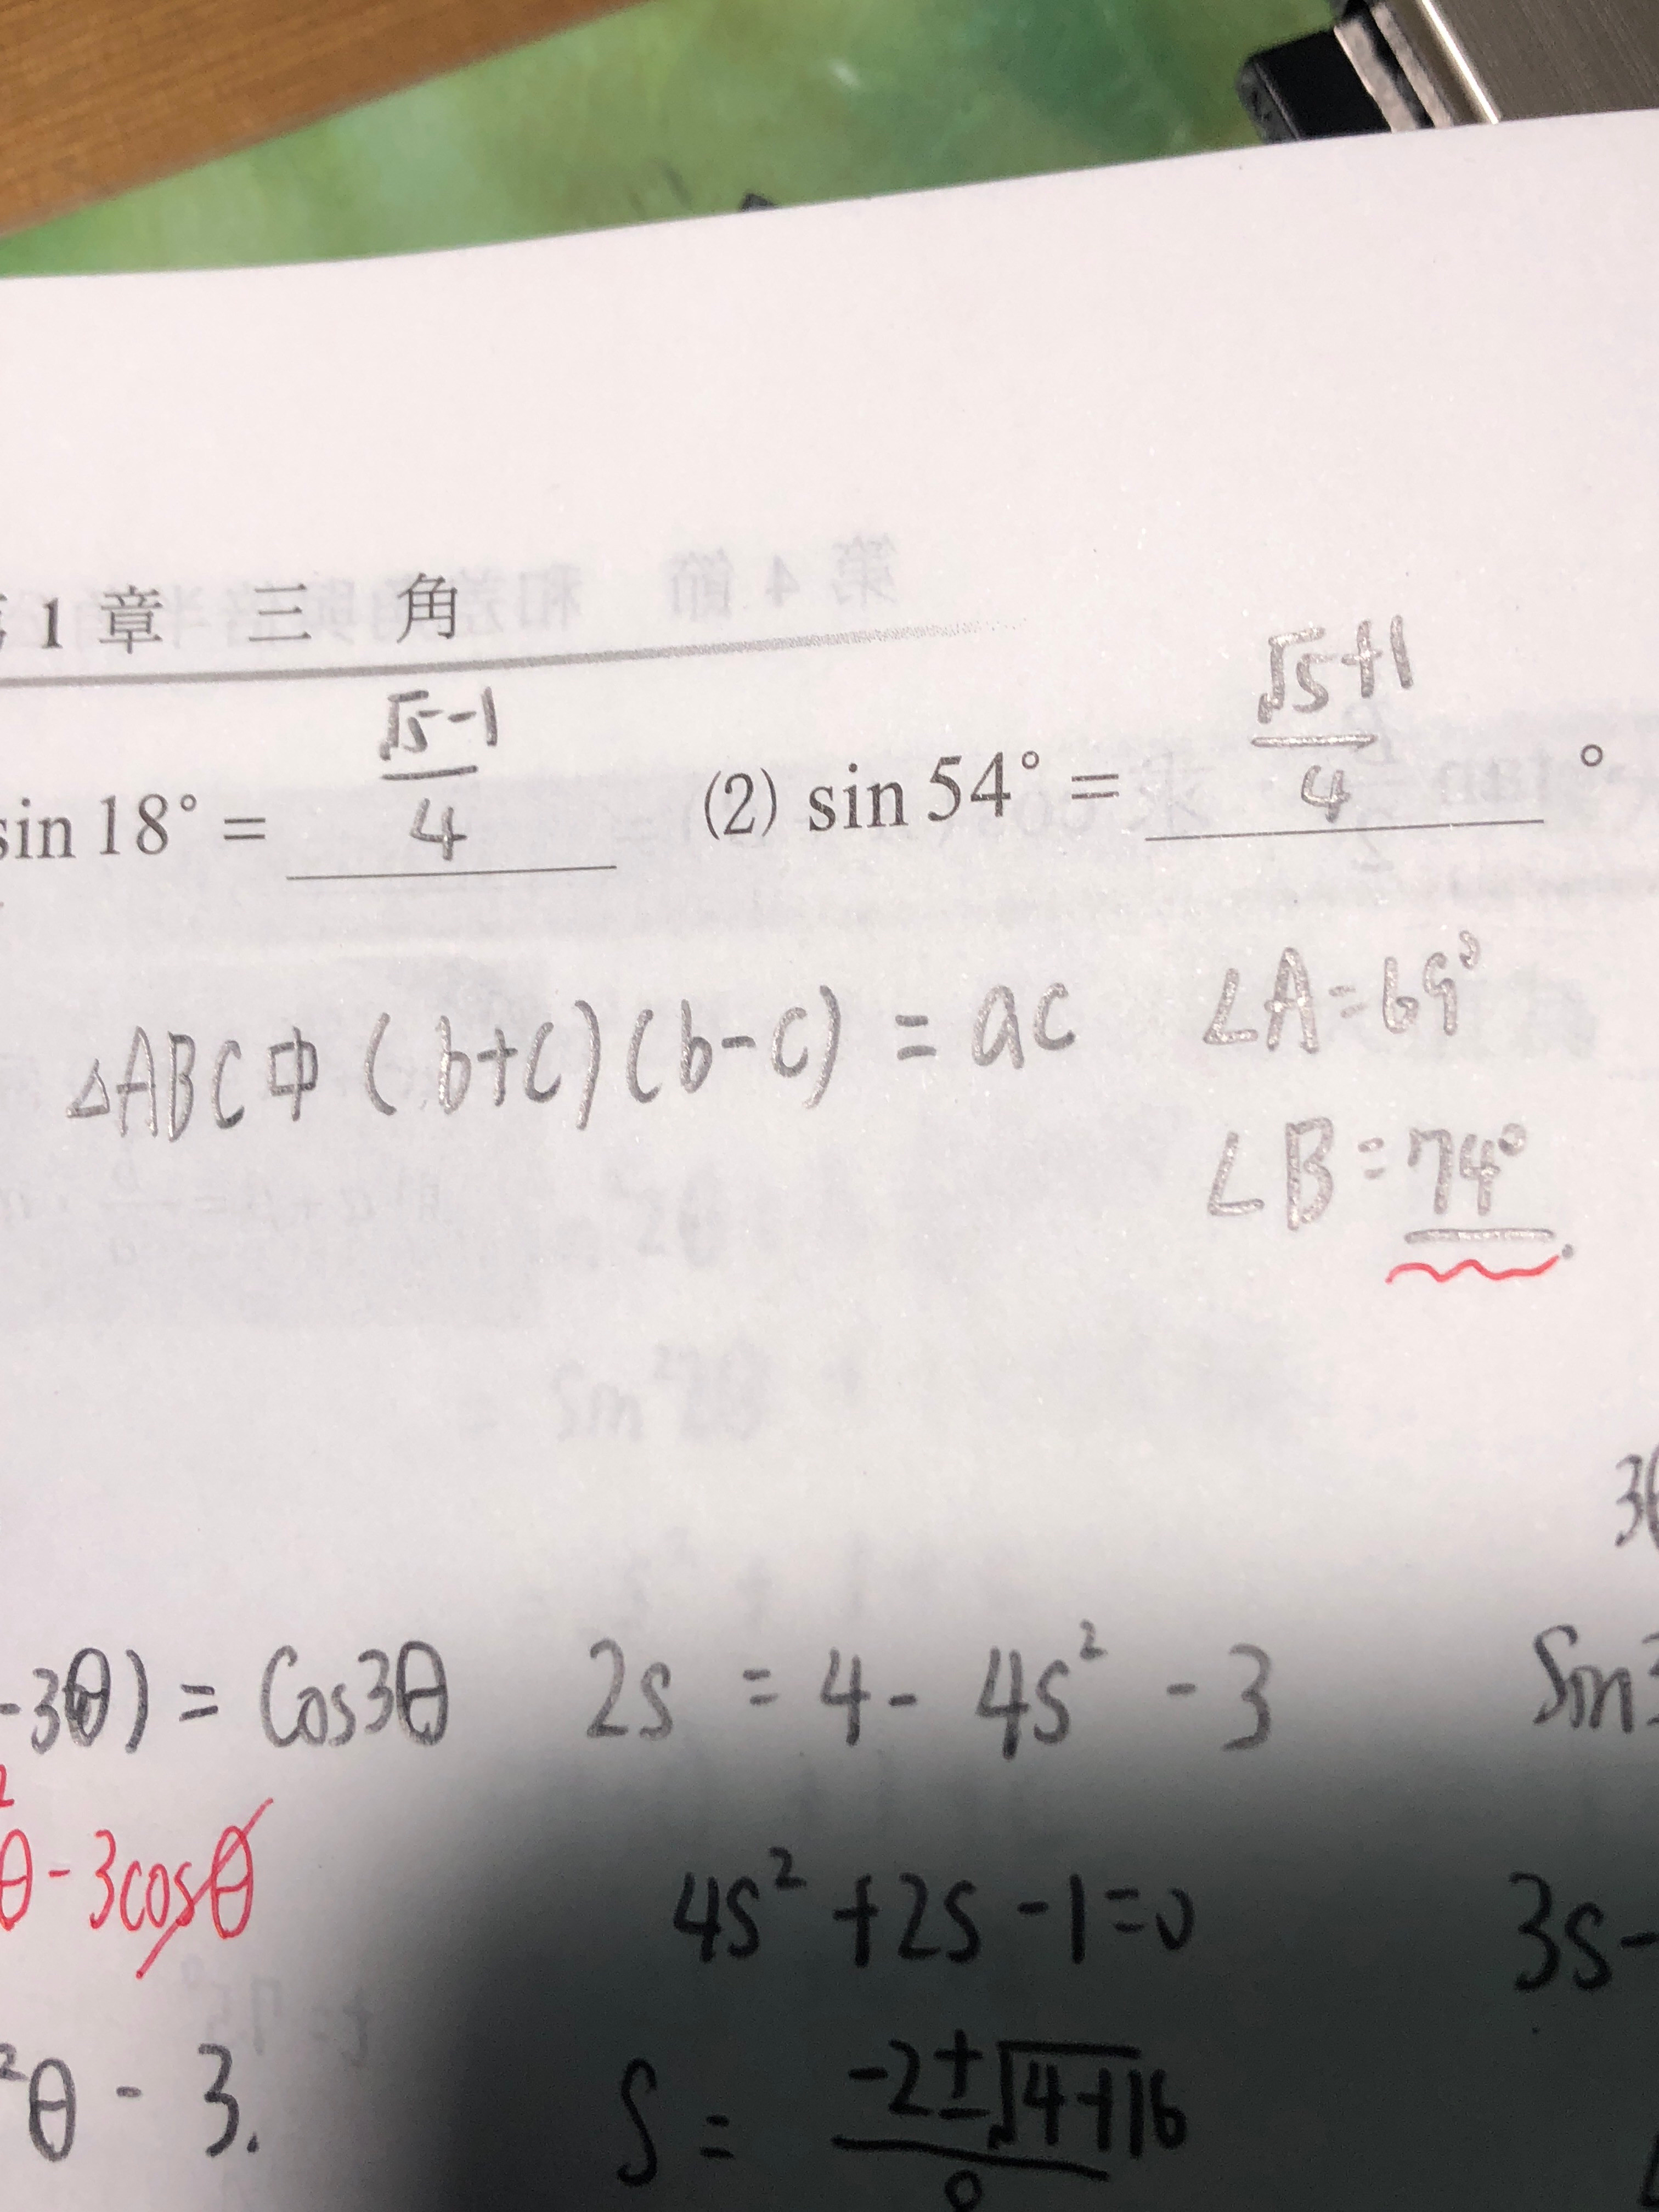 第1章 三 角
sin 18° = √5-1/4 (2) sin 54° = √5+1/4 °
△ABC中 (b+c)(b-c) = ac ∠A=69°
∠B=74°.
-3θ) = Cos3θ 2s = 4 - 4s² - 3
θ - 3cosθ 4s² + 2s - 1 = 0 3s-
²θ - 3. S = -2±√4+16